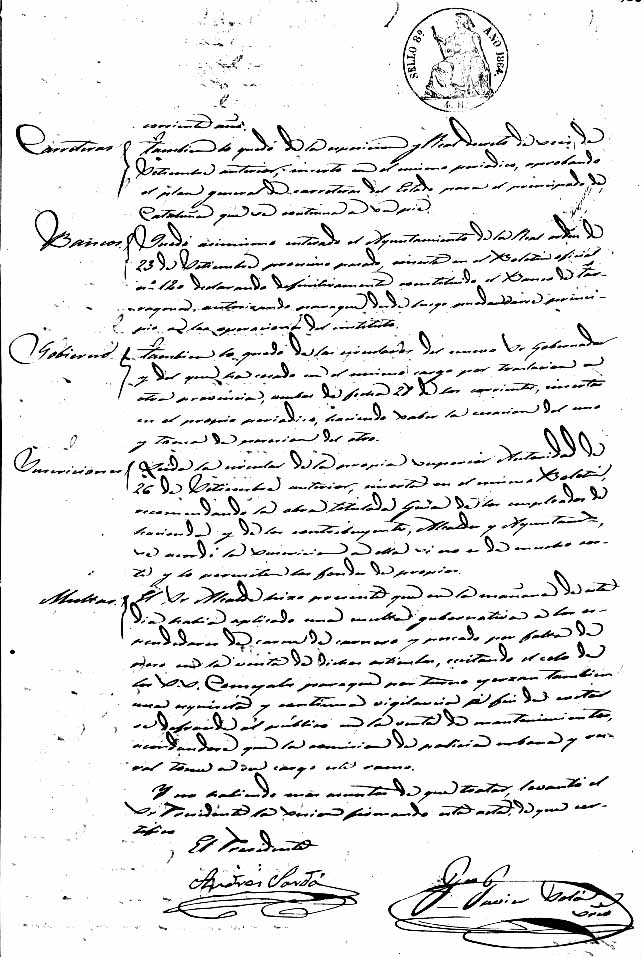 SELLO 8º AÑO 1864.
corriente año.
Carreteras También lo quedó de la esposicion y Real decreto de seis de
Setiembre anterior, inserto en el mismo periodico, aprobando
el plan general de carreteras del Estado para el principado de
Cataluña que se continua á su pié.
Bancos Quedó asimismo enterado el Ayuntamiento de la Real orden de
23 de Setiembre proximo pasado, inserta en el Boletin oficial
nº 120 declarando definitivamente constituido el Banco de Tar-
ragona, autorizando para que desde luego pueda darse princi-
pio á las operaciones del instituto.
Gobierno También lo quedó de las circulares del nuevo Sr Gobernador
y del que ha cesado en el mismo cargo por traslacion á
otra provincia, ambas de fecha 27 de los corrientes, insertas
en el propio periodico, haciendo saber la cesacion del uno
y toma de posesion del otro.
Suscriciones la circular de la propia superior Autoridad de
26 de Setiembre anterior, inserta en el mismo Boletin,
recomendando la obra titulada Guia de los empleados de
hacienda y de los contribuyentes, Alcaldes y Ayuntamtos,
se acordó la suscricion á ella si no es de mucho cos-
te y lo permiten los fondos de propios.
Multas. El Sr Alcalde hizo presente que en la mañana de este
dia habia aplicado una multa gubernativa á los es-
pendedores de carne de carnero y pescado por falta de
peso en la venta de dichos articulos, escitando el celo de
los S.S. Concejales para que por turno ejerzan tambien
una esquisita y continua vigilancia á fin de evitar
se defraude al público en la venta de mantenimientos,
acordandose que la comision de policia urbana y ru-
ral tome á su cargo este ramo.
Y no habiendo mas asuntos de que tratar, levantó el
Sr Presidente la sesion firmando este acta, de que cer-
tifico
El Presidente
Andrés Sardá
Javier Solá
Srio